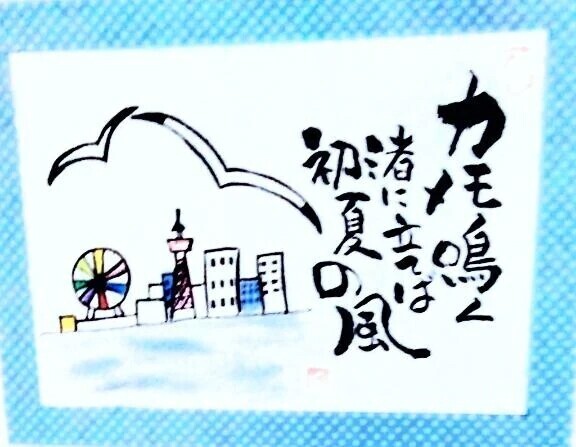 カモメ鳴く
渚に立てば
初夏の風